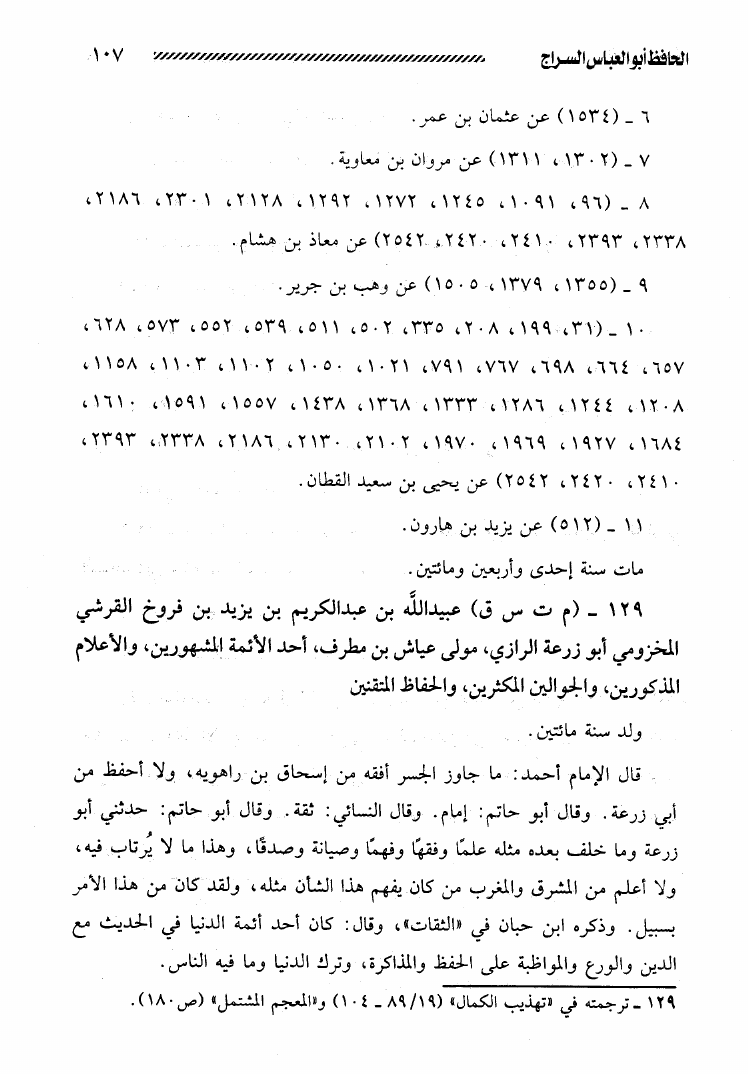 الحافظ أبو العباس السراج ١٠٧
٦ ـ (١٥٣٤) عن عثمان بن عمر.
٧ ـ (١٣٠٢، ١٣١١) عن مروان بن معاوية.
٨ ـ (٩٦، ١٠٩١، ١٢٤٥، ١٢٧٢، ١٢٩٢، ٢١٢٨، ٢٣٠١، ٢١٨٦،
٢٣٣٨، ٢٣٩٣، ٢٤١٠، ٢٤٢٠، ٢٥٤٢) عن معاذ بن هشام.
٩ ـ (١٣٥٥، ١٣٧٩، ١٥٠٥) عن وهب بن جرير.
١٠ ـ (٣١، ١٩٩، ٢٠٨، ٣٣٥، ٥٠٢، ٥١١، ٥٣٩، ٥٥٢، ٥٧٣، ٦٢٨،
٦٥٧، ٦٦٤، ٦٩٨، ٧٦٧، ٧٩١، ١٠٢١، ١٠٥٠، ١١٠٢، ١١٠٣، ١١٥٨،
١٢٠٨، ١٢٤٤، ١٢٨٦، ١٣٣٣، ١٣٦٨، ١٤٣٨، ١٥٥٧، ١٥٩١، ١٦١٠،
١٦٨٤، ١٩٢٧، ١٩٦٩، ١٩٧٠، ٢١٠٢، ٢١٣٠، ٢١٨٦، ٢٣٣٨، ٢٣٩٣،
٢٤١٠، ٢٤٢٠، ٢٥٤٢) عن يحيى بن سعيد القطان.
١١ ـ (٥١٢) عن يزيد بن هارون.
مات سنة إحدى وأربعين ومائتين.
١٢٩ ـ (م ت س ق) عبيدالله بن عبدالكريم بن يزيد بن فروخ القرشي
المخزومي أبو زرعة الرازي، مولى عياش بن مطرف، أحد الأئمة المشهورين، والأعلام
المذكورين، والجوالين المكثرين، والحفاظ المتقنين
ولد سنة مائتين.
قال الإمام أحمد: ما جاوز الجسر أفقه من إسحاق بن راهويه، ولا أحفظ من
أبي زرعة. وقال أبو حاتم: إمام. وقال النسائي: ثقة. وقال أبو حاتم: حدثني أبو
زرعة وما خلف بعده مثله علمًا وفقهًا وفهمًا وصيانة وصدقًا، وهذا ما لا يُرتاب فيه،
ولا أعلم من المشرق والمغرب من كان يفهم هذا الشأن مثله، ولقد كان من هذا الأمر
بسبيل. وذكره ابن حبان في «الثقات»، وقال: كان أحد أئمة الدنيا في الحديث مع
الدين والورع والمواظبة على الحفظ والمذاكرة، وترك الدنيا وما فيه الناس.
١٢٩ ـ ترجمته في «تهذيب الكمال» (١٩/ ٨٩ ـ ١٠٤) و«المعجم المشتمل» (ص١٨٠).